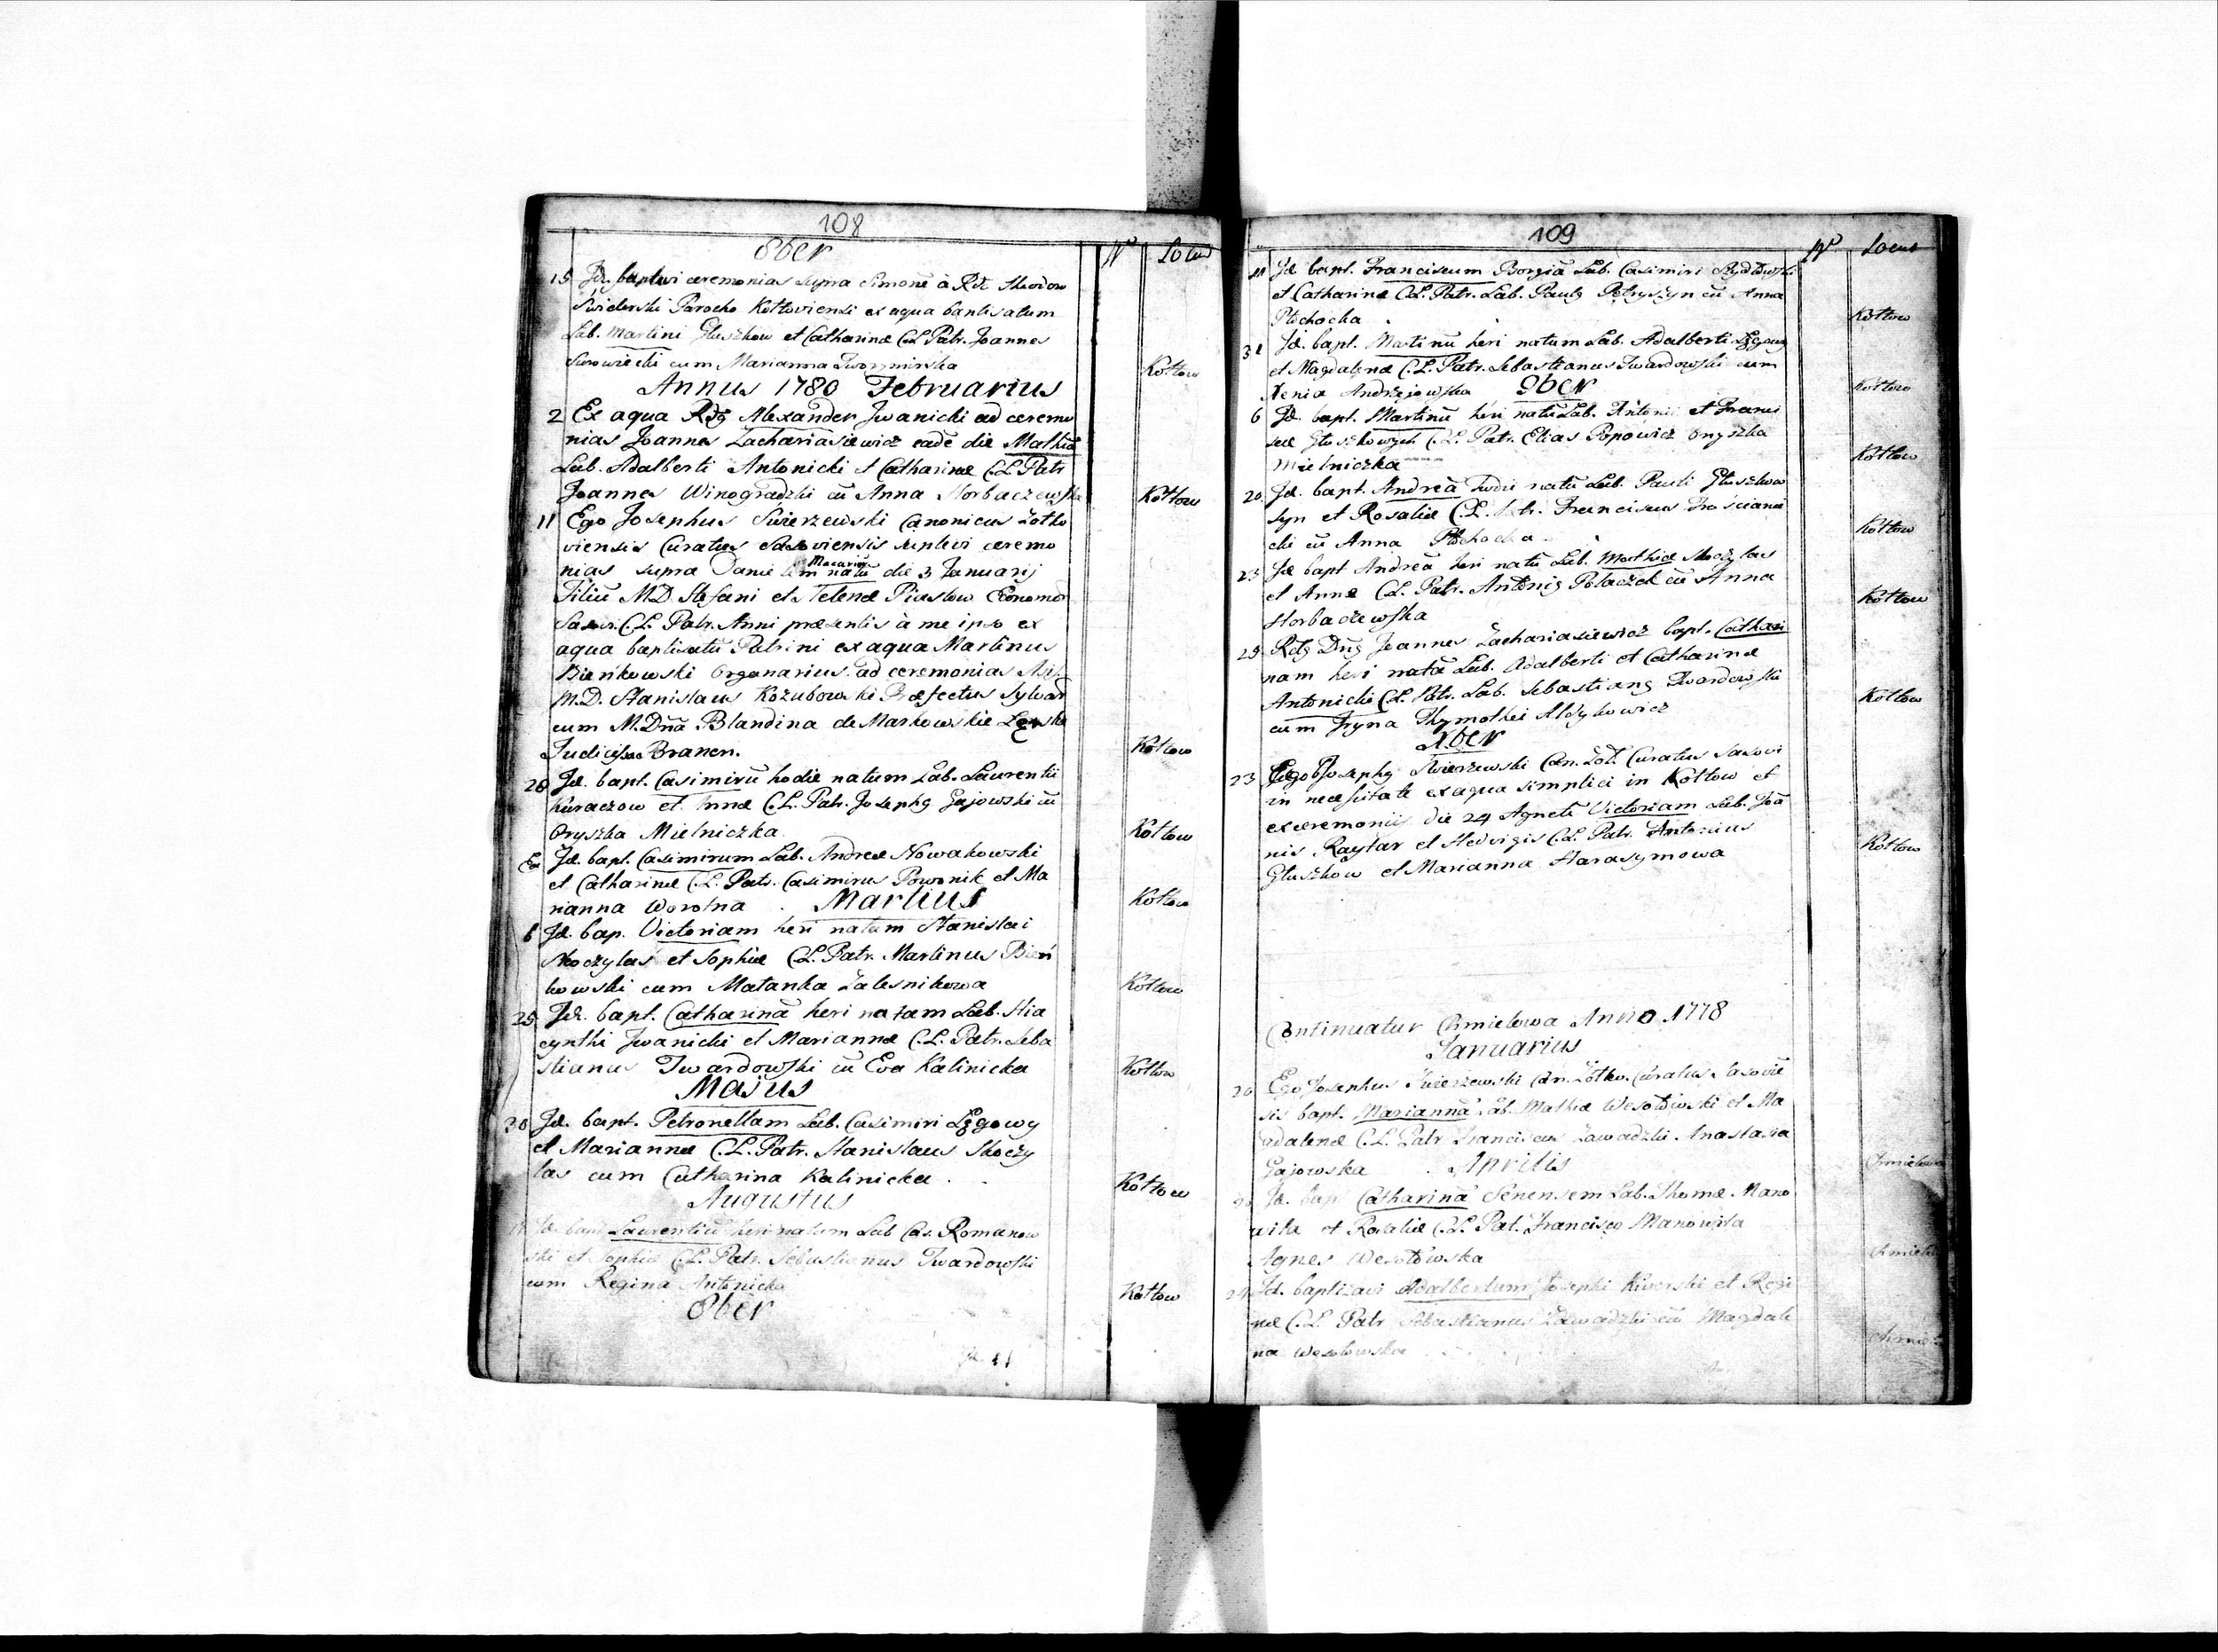 108
8ber
N Locus
15 Id. suplevi ceremonias supra Simonē à Rdo Theodoro
Swiderski Parocho Kottoviensi ex aqua baptisatum
Lab. Martini Gluszkow et Catharinæ C.L. Patr. Joannes
Surowiecki cum Marianna
Kottow
Annus 1780 Februarius
2 Ex aqua Rdg Alexander Jwanicki ad ceremo
nias Joannes Zachariasiewicz eadē die Mathiā
Lab. Adalberti Antonicki et Catharinæ C.L. Patr
Joannes Winogradzki cū Anna Horbaczewska
Kottow
11 Ego Josephus Swierzewski Canonicus Zołko
viensis Curatus Sassoviensis suplevi ceremo
nias supra Danielem Macariū natū die 3 Januarij
Filiū M.D. Stefani et Helenæ Piaskow Economor
Sasov. C.L. Patr. Anni præsentis à me ipso ex
aqua baptisatū Patrini ex aqua Martinus
Bieńkowski Organarius ad ceremonias
M.D. Stanislaus Kozubowski Præfectus Sylvar
cum M.Dnā Blandina de Markowskie Lęska
Judicissa Branen.
Kottow
20 Id. bapt. Casimirū hodie natum Lab. Laurentii
Kuraczow et Annæ C.L. Patr. Josephg Gajowski cū
Oryszka Mielniczka
Kottow
Ead Id. bapt. Casimirum Lab. Andreæ Nowakowski
et Catharinæ C.L. Patr. Casimirus Powonik et Ma
rianna Worotna . Martius
Kottow
6 Id. bap. Victoriam heri natam Stanislai
Skoczylas et Sophiæ C.L. Patr. Martinus Bień
kowski cum Matanka Zalesnikowa
Kottow
25 Id. bapt. Catharinā heri natam Lab. Hia
cynthi Jwanicki et Mariannæ C.L. Patr. Seba
stianus Twardowski cū Eva Kalinicka
Kottow
Majus
30 Id. bapt. Petronellam Lab. Casimiri Lęgowy
et Mariannæ C.L. Patr. Stanislaus Skoczy
las cum Catharina Kalinicka .
Kottow
Augustus
Id. bapt Laurentiū heri natum Lab Cas. Romanow
ski et Sophiæ C.L. Patr. Sebastianus Twardowski
cum Regina Antonicka
Kottow
8ber
109
N Locus
11 Id. bapt. Franciscum Borgiā Lab. Casimiri
et Catharinæ C.L. Patr. Lab. Paulg Petryszyn cū Anna
Płochocka .
Kottow
31 Id. bapt. Martinū heri natum Lab. Adalberti Lęgowy
et Magdalenæ C.L. Patr. Sebastianus Twardowski cum
Xenia Andrzejowska 9ber
Kottow
6 Id. bapt. Martinū heri natū Lab. Antonii et Franci
scæ Gluszkowych C.L. Patr. Elias Popowicz Oryszka
Mielniczka
Kottow
20 Id. bapt. Andreā hodie natū Lab. Pauli Gluszkow
syn et Rosaliæ C.L. Patr. Franciscus Trościane
cki cū Anna Płochocka
Kottow
23 Id bapt Andreā heri natū Lab. Mathiæ Skoczylas
et Annæ C.L. Patr. Antonig Polaczek cū Anna
Horbaczewska
Kottow
25 Rdg Dng Joannes Zachariasiewicz bapt. Cathari
nam heri natā Lab. Adalberti et Catharinæ
Antonicki C.L. Patr. Lab. Sebastiang Twardowski
cum Iryna Thymothei Aldykowicz
Kottow
Xber
23 Ego Josephg Swierzewski Can. Zoł. Curatus Sasovi
in necessitate ex aqua simplici in Kottow et
ex ceremoniis die 24 Agnetē Victoriam Lab. Joā
nis Raytar et Hedvigis C.L. Patr. Antonius
Gluszkow et Marianna Harasymowa
Kottow
Continuatur Chmielowa Anno 1778
Januarius
20 Ego Josephus Swierzewski Can. Zołko. Curatus Sasovie
sis bapt. Mariannā Lab. Mathiæ Wesołowski et Ma
gdalenæ C.L. Patr Franciscus Zawadzki Anastasia
Gajowska . Aprilis
Chmielowa
Id. bapt Catharinā Senensem Lab. Thomæ Mano
wita et Rosaliæ C.L. Pat. Francisco Manowita
Agnes Wesołowska
Id. baptizavi Adalbertum Josephi Kiwerski et Regi
næ C.L. Patr Sebastianus Zawadzki cū Magdale
na Wesołowska